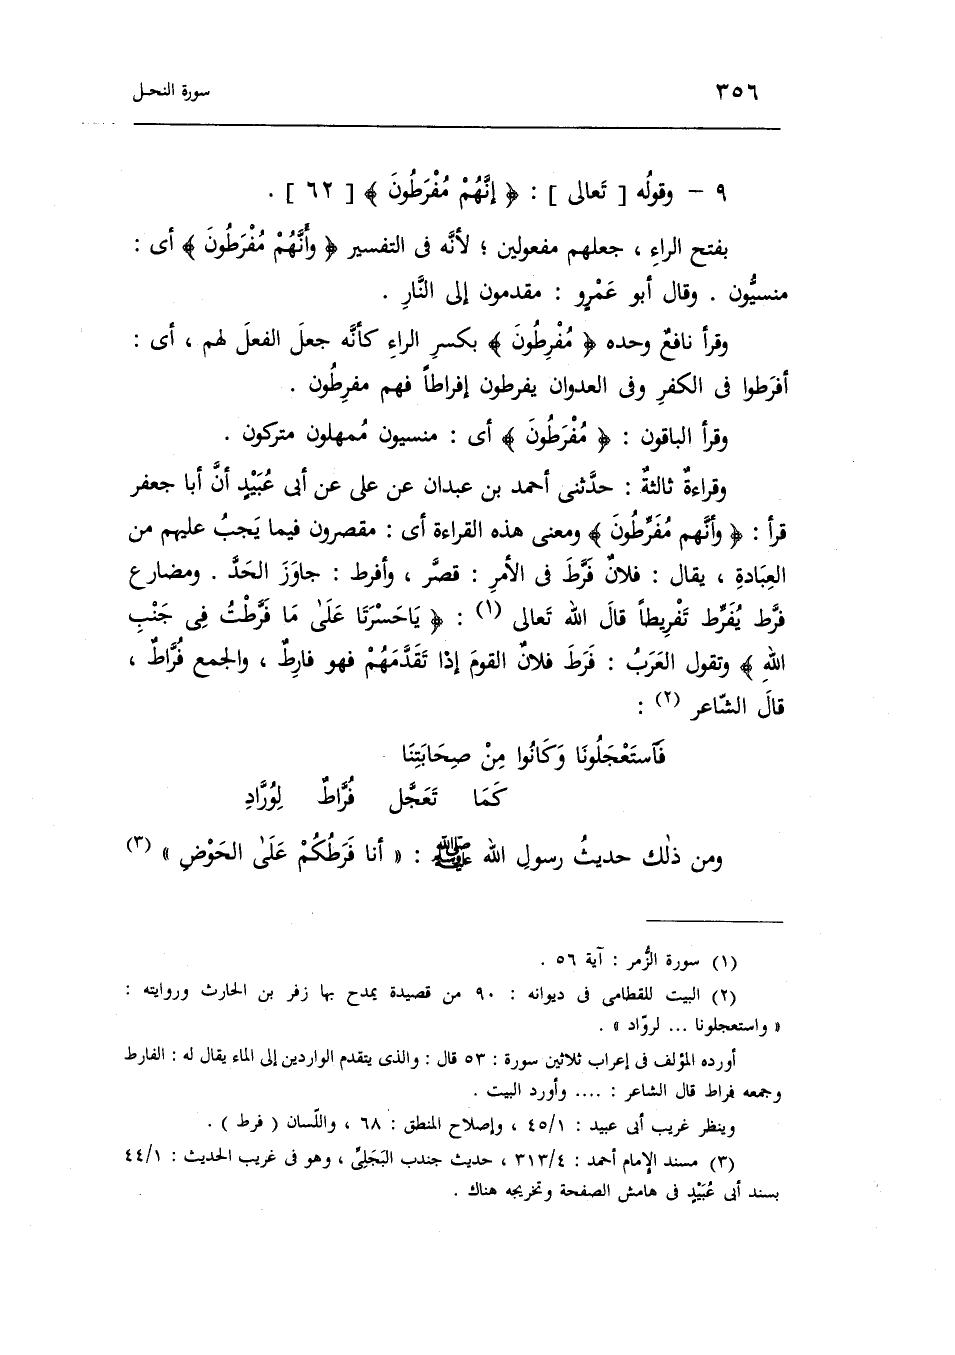 ٣٥٦
سورة النحل
٩ – وقولُه [ تَعالى ] : ﴿ إِنَّهُمْ مُفْرَطُونَ ﴾ [ ٦٢ ] .
بفتح الراءِ ، جعلهم مفعولين ؛ لأنَّه فى التفسير ﴿ وأَنَّهُمْ مُفْرَطُونَ ﴾ أى :
منسيُّون . وقال أبو عَمْرٍو : مقدمون إلى النَّارِ .
وقرأ نافعٌ وحده ﴿ مُفْرِطُونَ ﴾ بكسرِ الراءِ كأنَّه جعلَ الفعلَ لهم ، أى :
أفرَطوا فى الكفرِ وفى العدوان يفرطون إفراطاً فهم مفرِطُون .
وقرأ الباقون : ﴿ مُفْرَطُونَ ﴾ أى : منسيون مُمهلون متركون .
وقراءةٌ ثالثةٌ : حدَّثنى أحمد بن عبدان عن على عن أبى عُبَيْدٍ أنَّ أبا جعفر
قرأ : ﴿ وأنَّهم مُفَرِّطُونَ ﴾ ومعنى هذه القراءة أى : مقصرون فيما يَجبُ عليهم من
العِبَادةِ ، يقال : فلانٌ فَرَّطَ فى الأمرِ : قصَّر ، وأفرط : جاوَزَ الحَدَّ . ومضارع
فرَّط يُفَرِّط تَفْرِيطاً قالَ الله تَعالى (١) : ﴿ يَاحَسْرَتَا عَلَىٰ مَا فَرَّطْتُ فِى جَنْبِ
اللهِ ﴾ وتقول العَرَبُ : فَرَطَ فلانٌ القومَ إذَا تَقَدَّمَهُمْ فهو فارِطٌ ، والجمع فُرَّاطٌ ،
قالَ الشّاعر (٢) :
فَآستَعْجَلُونَا وَكَانُوا مِنْ صِحَابَتِنَا
كَمَا تَعَجَّل فُرَّاطٌ لِوُرَّادِ
ومن ذٰلك حديثُ رسولِ الله ﷺ : « أنا فَرَطُكُمْ عَلَىٰ الحَوْضِ » (٣)
(١) سورة الزُّمر : آية ٥٦ .
(٢) البيت للقطامى فى ديوانه : ٩٠ من قصيدة يمدح بها زفر بن الحارث وروايته :
« واستعجلونا ... لروّاد » .
أورده المؤلف فى إعراب ثلاثين سورة : ٥٣ قال : والذى يتقدم الواردين إلى الماء يقال له : الفارط
وجمعه فراط قال الشاعر : .... وأورد البيت .
وينظر غريب أبى عبيد : ٤٥/١ ، وإصلاح المنطق : ٦٨ ، واللّسان ( فرط ) .
(٣) مسند الإمام أحمد : ٣١٣/٤ ، حديث جندب البَجَلِىِّ ، وهو فى غريب الحديث : ٤٤/١
بسند أبى عُبَيْدٍ فى هامش الصفحة وتخريجه هناك .